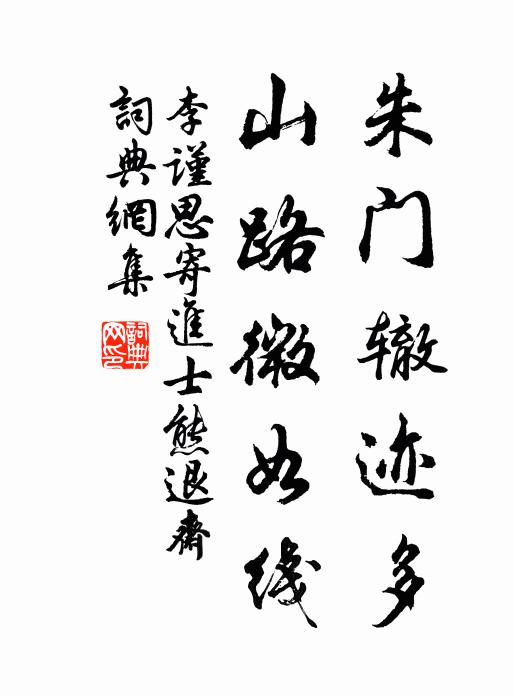 朱门辙迹多
山路微如线
李謹思寄進士熊退齋
詞典網集
詞典網印